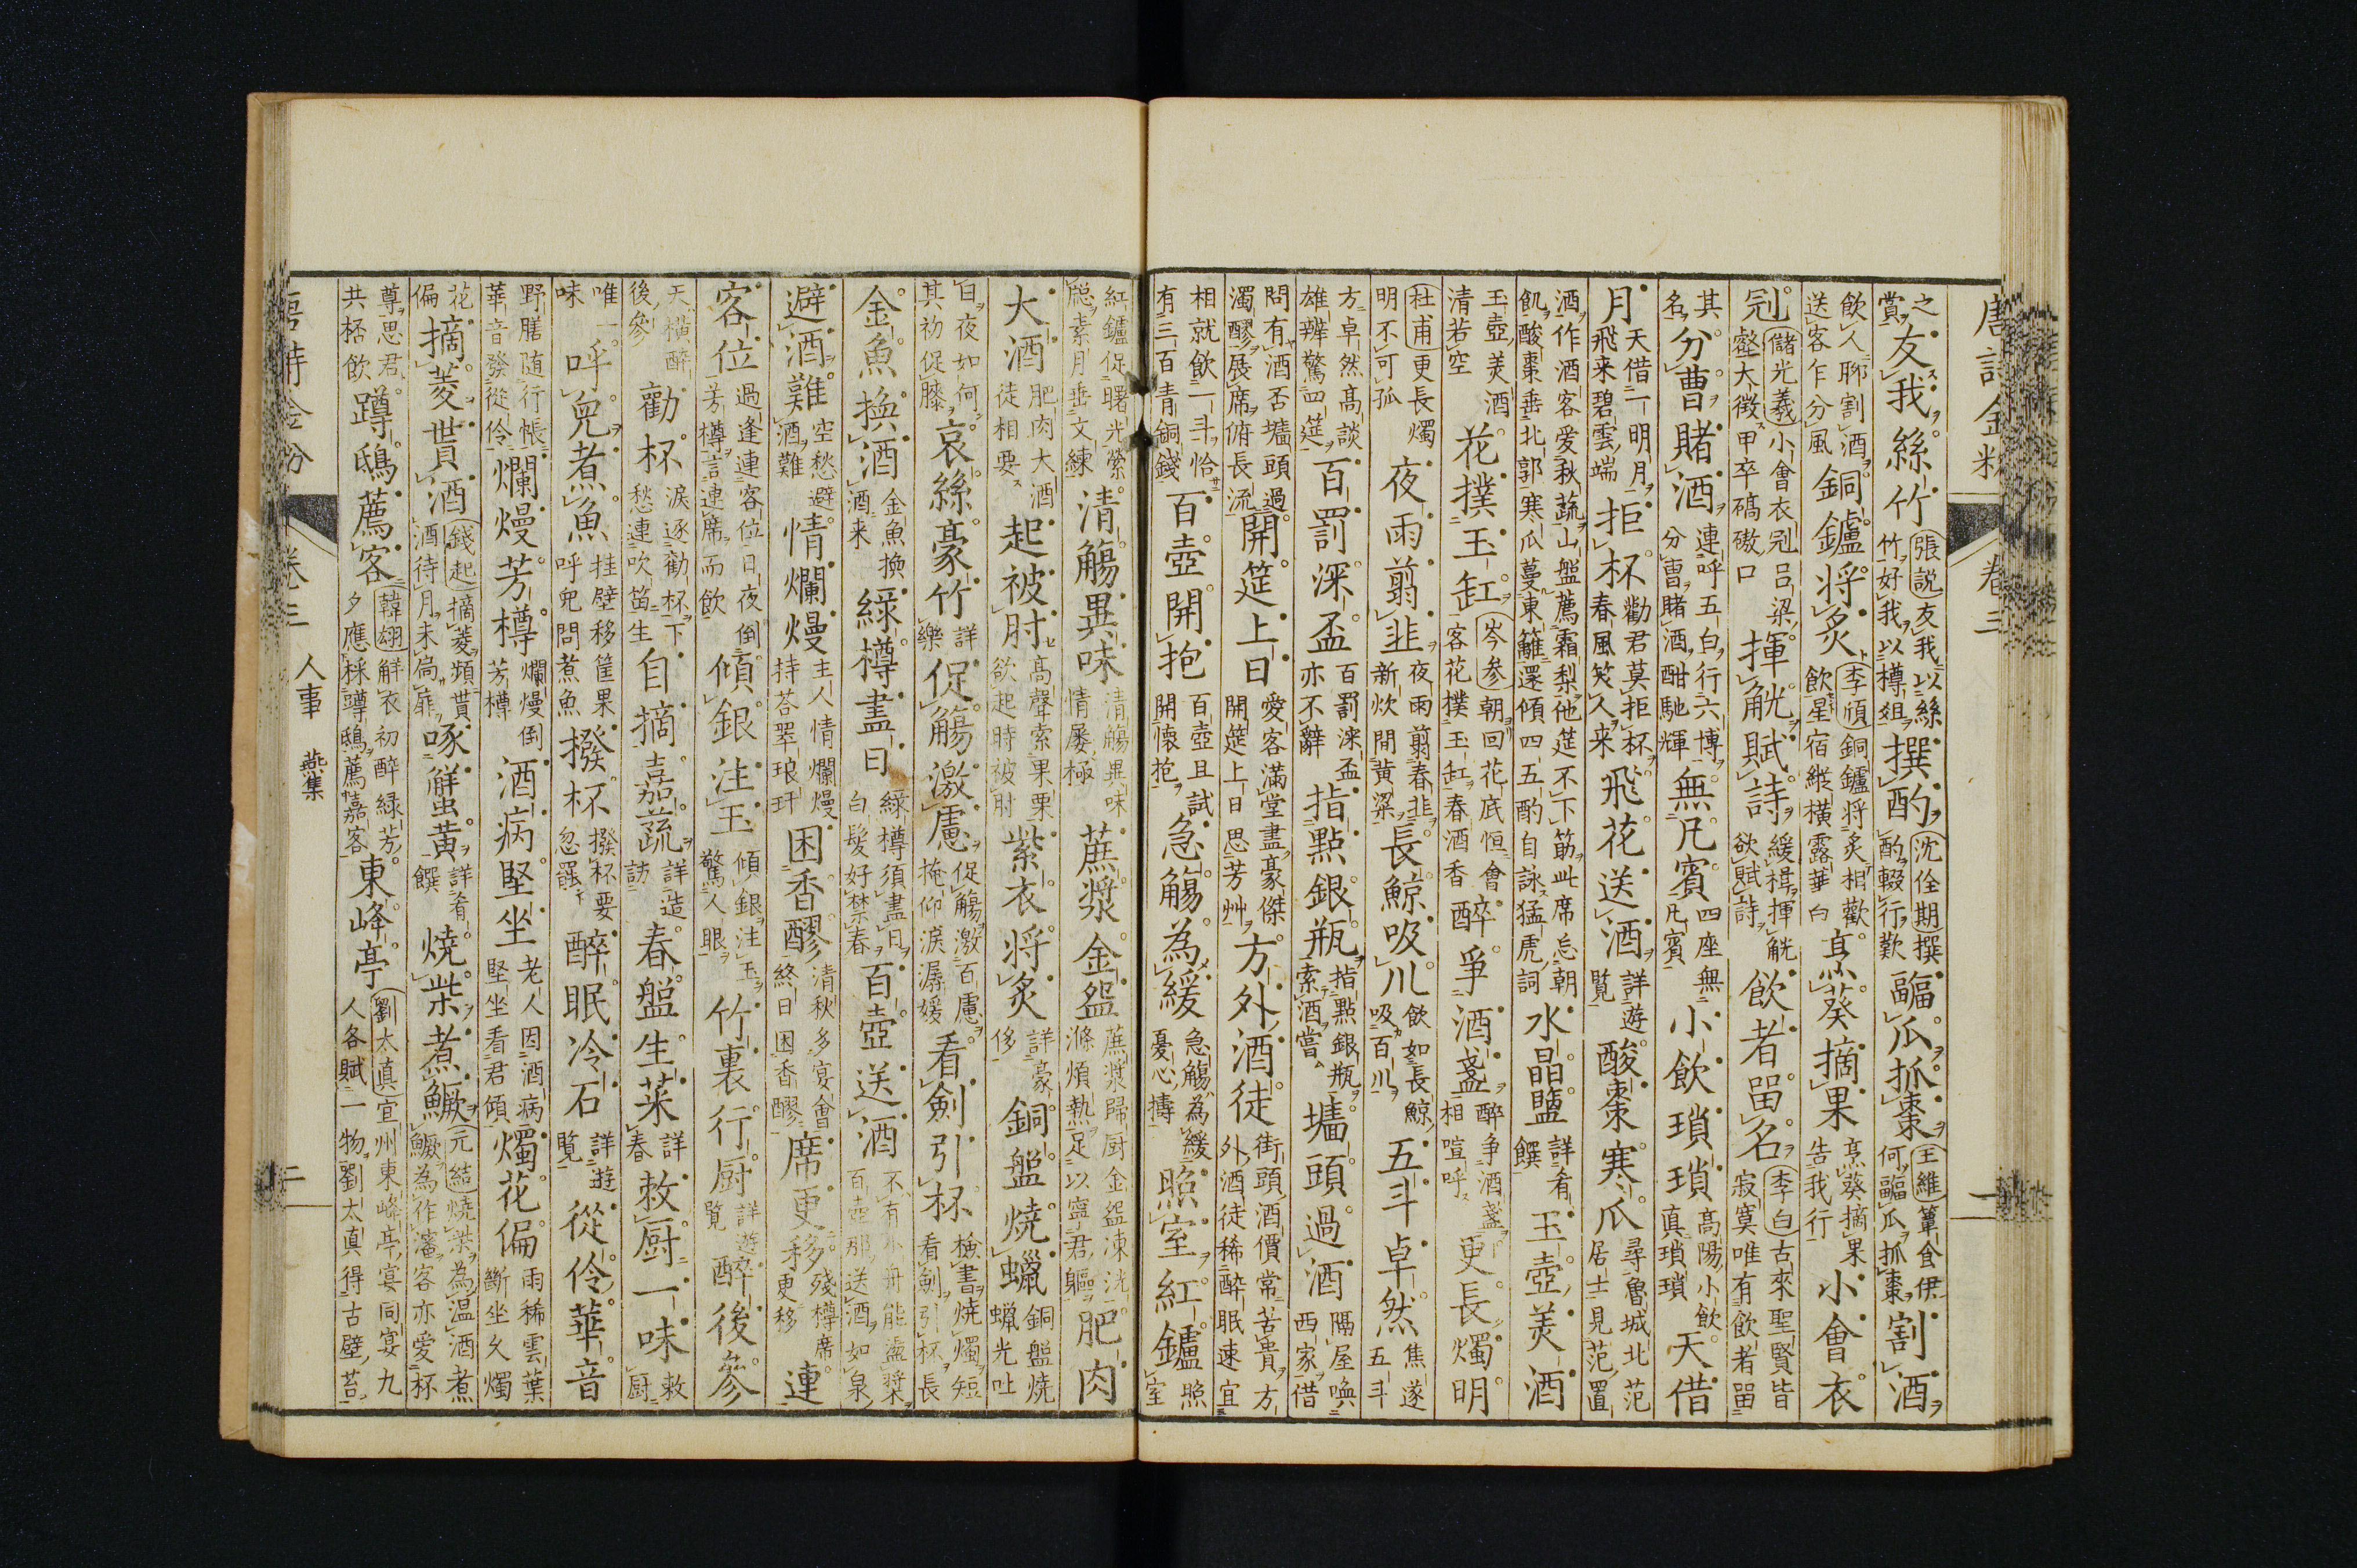 唐詩金粉 卷三 一
之賞友我絲竹 張說友我以絲竹好我以樽俎 撰酌 沈佺期撰酌輟行歎 副瓜抓棗 王維葷食伊何副瓜抓棗 割酒
飲人聊割酒送客乍分風 銅鑪将炙 李頎銅鑪将炙相歡飲星宿縱橫露華白 烹葵摘果 烹葵摘果告我行 小會衣
冠 儲光羲小會衣冠呂梁壑大徵甲卒碻磝口 揮觥賦詩 緩楫揮觥欲賦詩 飲者留名 李白古來聖賢皆寂寞唯有飲者留
其名 分曹賭酒 連呼五白行六博分曹賭酒酣馳輝 無凡賓 四座無凡賓 小飲瑣瑣 高陽小飲真瑣瑣 天借
月 天借一明月飛来碧雲端 拒杯 勸君莫拒杯春風笑人来 飛花送酒 詳遊覽 酸棗寒瓜 尋魯城北范居士見范置
酒作酒客愛秋蔬山盤薦霜梨他筵不下筯此席忘朝飢酸棗垂北郭寒瓜蔓東籬還傾四五酌自詠猛虎詞 水晶鹽 詳肴饌 玉壺美酒
玉壺美酒清若空 花撲玉缸 岑参朝回花底恒會客花撲玉缸春酒香 醉爭酒盞 醉争酒盞相喧呼 更長燭明
杜甫更長燭明不可孤 夜雨翦韭 夜雨翦春韭新炊間黄粱 長鯨吸川 飲如長鯨吸百川 五斗卓然 焦遂五斗
方卓然高談雄辨驚四筵 百罰深盃 百罰深盃亦不辭 指點銀瓶 指點銀瓶索酒嘗 墻頭過酒 隔屋喚西家借
問有酒否墻頭過濁醪展席俯長流 開筵上日 愛客滿堂盡豪傑開筵上日思芳艸 方外酒徒 街頭酒價常苦貴方外酒徒稀醉眠速宜
相就飲一斗恰有三百青銅錢 百壺開抱 百壺且試開懷抱 急觴為緩 急觴為緩憂心擣 照室紅鑪 照室
紅鑪促曙光縈牕素月垂文練 清觴異味 清觴異味情屢極 蔗漿金盌 蔗漿歸厨金盌凍洗滌煩熱足以寧君軀 肥肉
大酒 肥肉大酒徒相要 起被肘 高聲索果栗欲起時被肘 紫衣将炙 詳豪侈 銅盤燒蠟 銅盤燒蠟光吐
日夜如何其初促膝 哀絲豪竹 詳樂 促觴激慮 促觴激百慮掩仰淚潺媛 看劍引杯 檢書燒燭短看劍引杯長
金魚換酒 金魚換酒来 綠樽盡日 綠樽須盡日白髮好禁春 百壺送酒 不有小舟能盪槳百壺那送酒如泉
避酒難 空愁避酒難 情爛熳 主人情爛熳持荅翠琅玕 困香醪 清秋多宴會終日困香醪 席更移 殘樽席更移 連
客位 過逢連客位日夜倒芳樽言連席而飲 傾銀注玉 傾銀注玉驚人眼 竹裏行厨 詳遊覽 醉後參
天橫醉後參 勸杯 淚逐勸杯下愁連吹笛生 自摘嘉蔬 詳造訪 春盤生菜 詳春 敕厨一味 敕厨
唯一味 呼兒煮魚 挂壁移筐果呼兒問煮魚 撥杯 撥杯要忽罷 醉眠冷石 詳遊覽 從伶華音
野膳随行帳華音發從伶 爛熳芳樽 爛熳倒芳樽 酒病堅坐 老人因酒病堅坐看君傾 燭花偏 雨稀雲葉斷坐久燭
花偏 摘菱貰酒 錢起摘菱頻貰酒待月未扃扉 啄蟹黄 詳肴饌 燒柴煮鱖 元結燒柴為温酒煮鱖為作瀋客亦愛杯
尊思君共杯飲 蹲鴟薦客 韓翃觧衣初醉綠芳夕應採蹲鴟薦嘉客 東峰亭 劉太真宜州東峰亭宴同宴九人各賦一物劉太真得古壁苔
唐詩金粉 卷三 人事 燕集 二